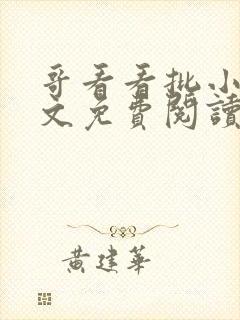 哥看看批小
文免費閱讀
黃建華